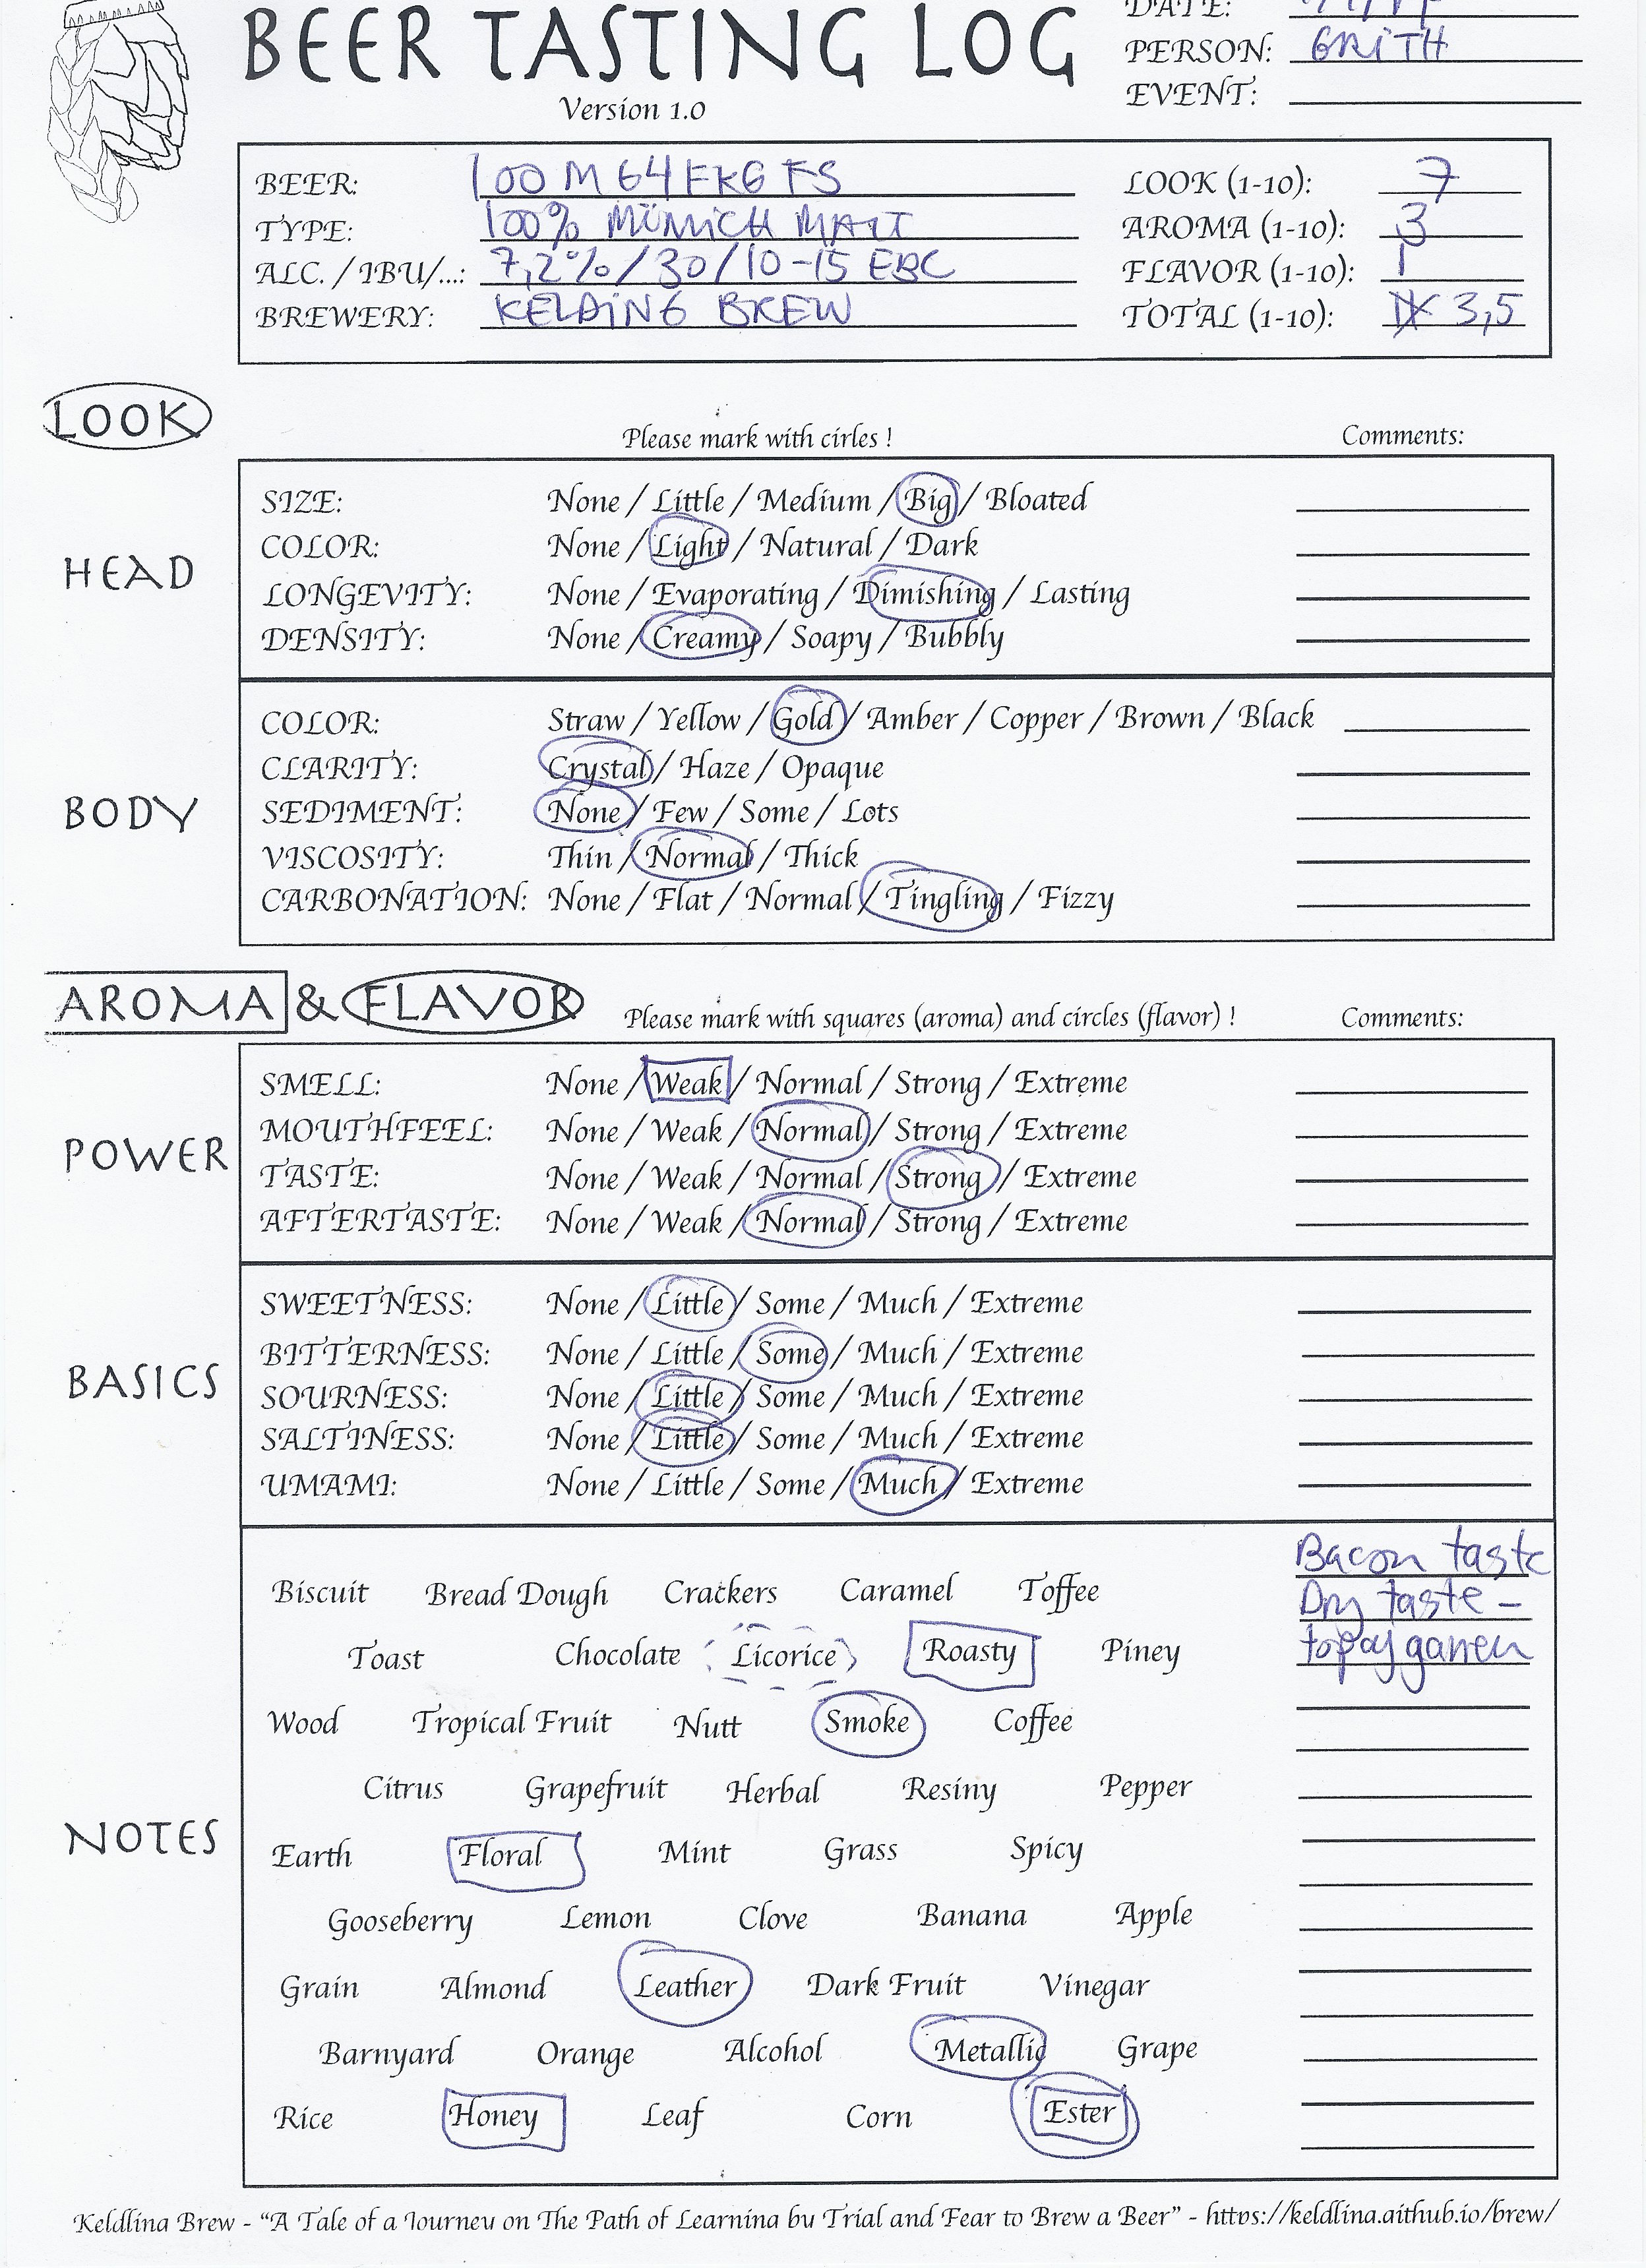 BEER TASTING LOG
Version 1.0
DATE:
PERSON: GRITH
EVENT:
BEER: 100 M 64 EKG FS
TYPE: 100% MÜNICH MALT
ALC. / IBU/...: 7,2% / 30 / 10-15 EBC
BREWERY: KELDING BREW
LOOK (1-10): 7
AROMA (1-10): 3
FLAVOR (1-10): 1
TOTAL (1-10): 3,5
LOOK
Please mark with cirles !
Comments:
HEAD
SIZE: None / Little / Medium / Big / Bloated
COLOR: None / Light / Natural / Dark
LONGEVITY: None / Evaporating / Dimishing / Lasting
DENSITY: None / Creamy / Soapy / Bubbly
BODY
COLOR: Straw / Yellow / Gold / Amber / Copper / Brown / Black
CLARITY: Crystal / Haze / Opaque
SEDIMENT: None / Few / Some / Lots
VISCOSITY: Thin / Normal / Thick
CARBONATION: None / Flat / Normal / Tingling / Fizzy
AROMA & FLAVOR
Please mark with squares (aroma) and circles (flavor) !
Comments:
POWER
SMELL: None / Weak / Normal / Strong / Extreme
MOUTHFEEL: None / Weak / Normal / Strong / Extreme
TASTE: None / Weak / Normal / Strong / Extreme
AFTERTASTE: None / Weak / Normal / Strong / Extreme
BASICS
SWEETNESS: None / Little / Some / Much / Extreme
BITTERNESS: None / Little / Some / Much / Extreme
SOURNESS: None / Little / Some / Much / Extreme
SALTINESS: None / Little / Some / Much / Extreme
UMAMI: None / Little / Some / Much / Extreme
NOTES
Biscuit Bread Dough Crackers Caramel Toffee
Toast Chocolate Licorice Roasty Piney
Wood Tropical Fruit Nutt Smoke Coffee
Citrus Grapefruit Herbal Resiny Pepper
Earth Floral Mint Grass Spicy
Gooseberry Lemon Clove Banana Apple
Grain Almond Leather Dark Fruit Vinegar
Barnyard Orange Alcohol Metallic Grape
Rice Honey Leaf Corn Ester
Bacon taste
Dry taste -
top af ganen
Keldlina Brew - "A Tale of a Journey on The Path of Learnina by Trial and Fear to Brew a Beer" - https://keldlina.aithub.io/brew/